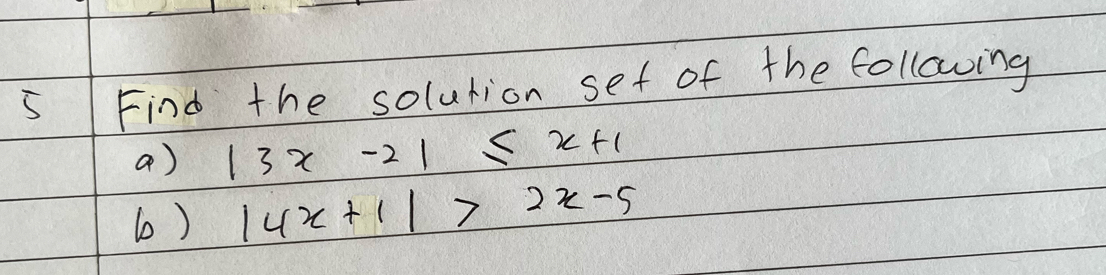 5 Find the solution set of the following
a) |3x -2| ≤ x+1
b) |4x+1| > 2x-5